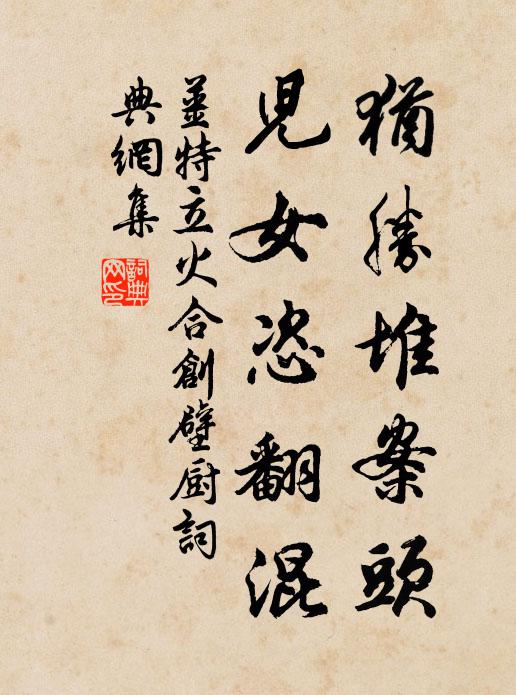 猶勝堆案頭
兒女恣翻混
姜特立火合創壁厨詞
典網集
詞典網印